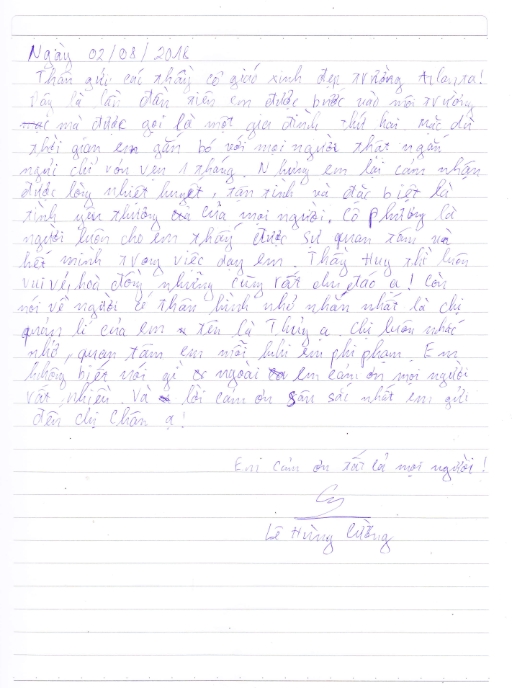 Ngày 02/08/2018
Thân gửi các thầy cô giáo xinh đẹp trường Atlanta!
Đây là lần đầu tiên em được bước vào môi trường
mà được gọi là một gia đình thứ hai. Mặc dù
thời gian em gắn bó với mọi người thật ngắn
ngủi chỉ vỏn vẹn 1 tháng. Nhưng em lại cảm nhận
được lòng nhiệt huyết, tận tình và đặc biệt là
tình yêu thương của mọi người. Cô Phương là
người luôn cho em thấy được sự quan tâm và
hết mình trong việc dạy em. Thầy Huy thì luôn
vui vẻ, hoà đồng nhưng cũng rất chu đáo ạ! Còn
nói về người có thân hình nhỏ nhắn nhất là chị
quản lí của em tên là Thủy ạ. Chị luôn nhắc
nhở, quan tâm em mỗi khi em phi phạm. Em
không biết nói gì ngoài em cảm ơn mọi người
rất nhiều. Và lời cảm ơn sâu sắc nhất em gửi
đến chị Chân ạ!
Em cảm ơn tất cả mọi người!
Lê Hùng Cường